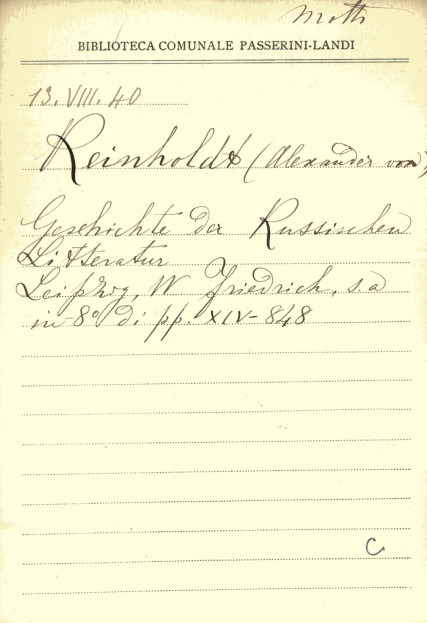 Motti
BIBLIOTECA COMUNALE PASSERINI-LANDI
13.VIII.40
Reinholdt (Alexander von)
Geschichte der Russischen
Litteratur
Leipzig, W Friedrich, s.a
in-8° di pp. XIV-848
C